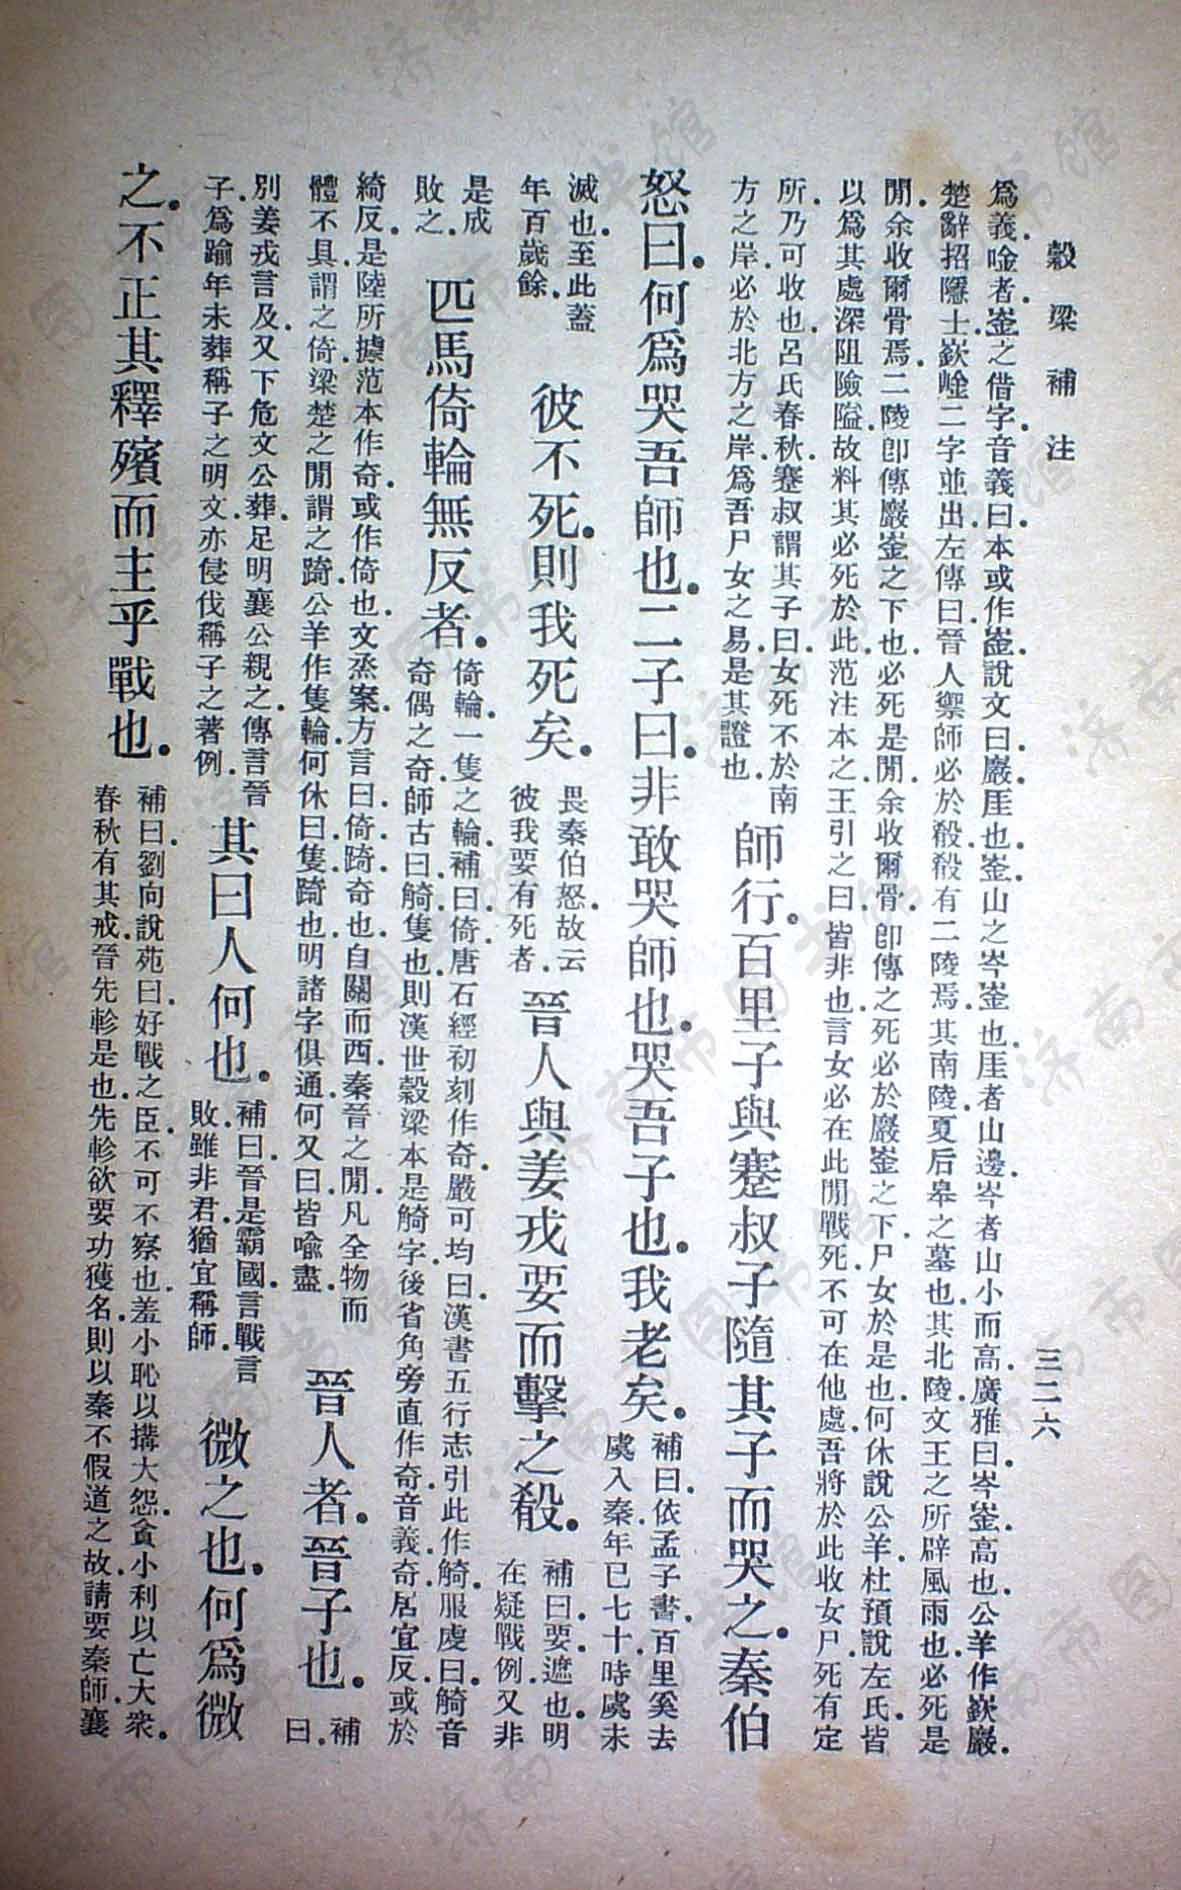 穀梁補注
三二六
爲義唫者崟之借字音義曰本或作崟說文曰巖厓也崟山之岑崟也厓者山邊岑者山小而高廣雅曰岑崟高也公羊作嶔巖
楚辭招隱士嶔崟二字並出左傳曰晉人禦師必於殽殽有二陵焉其南陵夏后皋之墓也其北陵文王之所辟風雨也必死是
閒余收爾骨焉二陵卽傳巖崟之下也必死是閒余收爾骨卽傳之死必於巖崟之下尸女於是也何休說公羊杜預說左氏皆
以爲其處深阻險隘故料其必死於此范注本之王引之曰皆非也言女必在此閒戰死不可在他處吾將於此收女尸死有定
所乃可收也呂氏春秋蹇叔謂其子曰女死不於南
方之岸必於北方之岸爲吾尸女之易是其證也
師行百里子與蹇叔子隨其子而哭之秦伯
怒曰何爲哭吾師也二子曰非敢哭師也哭吾子也我老矣
補曰依孟子書百里奚去
虞入秦年已七十時虞未
滅也至此蓋
年百歲餘
彼不死則我死矣
畏秦伯怒故云
彼我要有死者
晉人與姜戎要而擊之殽
補曰要遮也明
在疑戰例又非
是成
敗之
匹馬倚輪無反者
倚輪一隻之輪補曰倚唐石經初刻作奇嚴可均曰漢書五行志引此作觭服虔曰觭音
奇偶之奇師古曰觭隻也則漢世穀梁本是觭字後省角旁直作奇音義奇居宜反或於
綺反是陸所據范本作奇或作倚也文烝案方言曰倚踦奇也自關而西秦晉之閒凡全物而
體不具謂之倚梁楚之閒謂之踦公羊作隻輪何休曰隻踦也明諸字俱通何又曰皆喩盡
晉人者晉子也
補
曰
別姜戎言及又下危文公葬足明襄公親之傳言晉
子爲踰年未葬稱子之明文亦侵伐稱子之著例
其曰人何也
補曰晉是霸國言戰言
敗雖非君猶宜稱師
微之也何爲微
之不正其釋殯而主乎戰也
補曰劉向說苑曰好戰之臣不可不察也羞小恥以搆大怨貪小利以亡大衆
春秋有其戒晉先軫是也先軫欲要功獲名則以秦不假道之故請要秦師襄